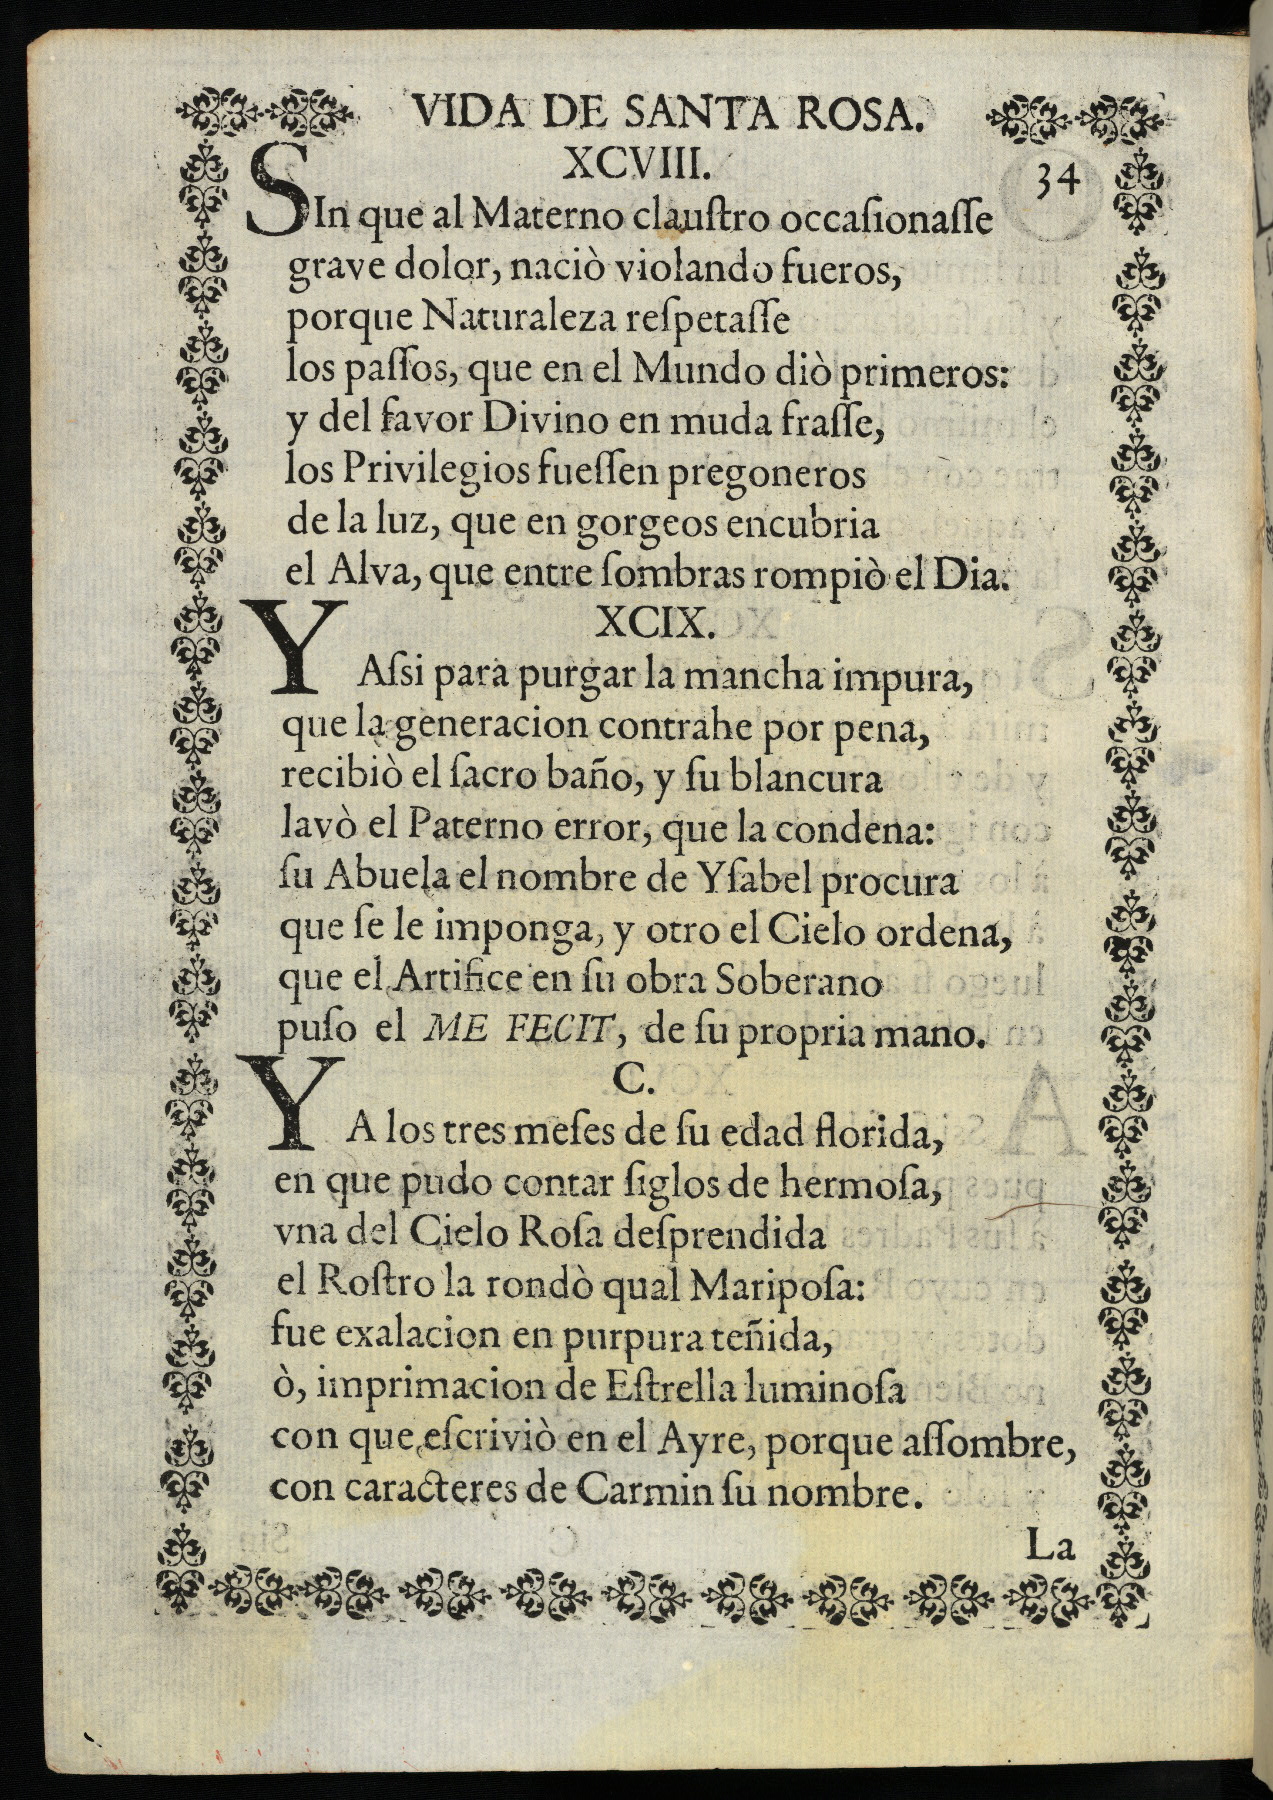 VIDA DE SANTA ROSA.
34
XCVIII.
SIn que al Materno clauſtro occaſionaſſe
grave dolor, naciò violando fueros,
porque Naturaleza reſpetaſſe
los paſſos, que en el Mundo diò primeros:
y del favor Divino en muda fraſſe,
los Privilegios fueſſen pregoneros
de la luz, que en gorgeos encubria
el Alva, que entre ſombras rompiò el Dia.
XCIX.
Y Aſsi para purgar la mancha impura,
que la generacion contrahe por pena,
recibiò el ſacro baño, y ſu blancura
lavò el Paterno error, que la condena:
ſu Abuela el nombre de Yſabel procura
que ſe le imponga, y otro el Cielo ordena,
que el Artifice en ſu obra Soberano
puſo el ME FECIT, de ſu propria mano.
C.
YA los tres meſes de ſu edad florida,
en que pudo contar ſiglos de hermoſa,
vna del Cielo Roſa deſprendida
el Roſtro la rondò qual Mariposa:
fue exalacion en purpura teñida,
ò, imprimacion de Eſtrella luminoſa
con que eſcriviò en el Ayre, porque aſſombre,
con caracteres de Carmin ſu nombre.
La